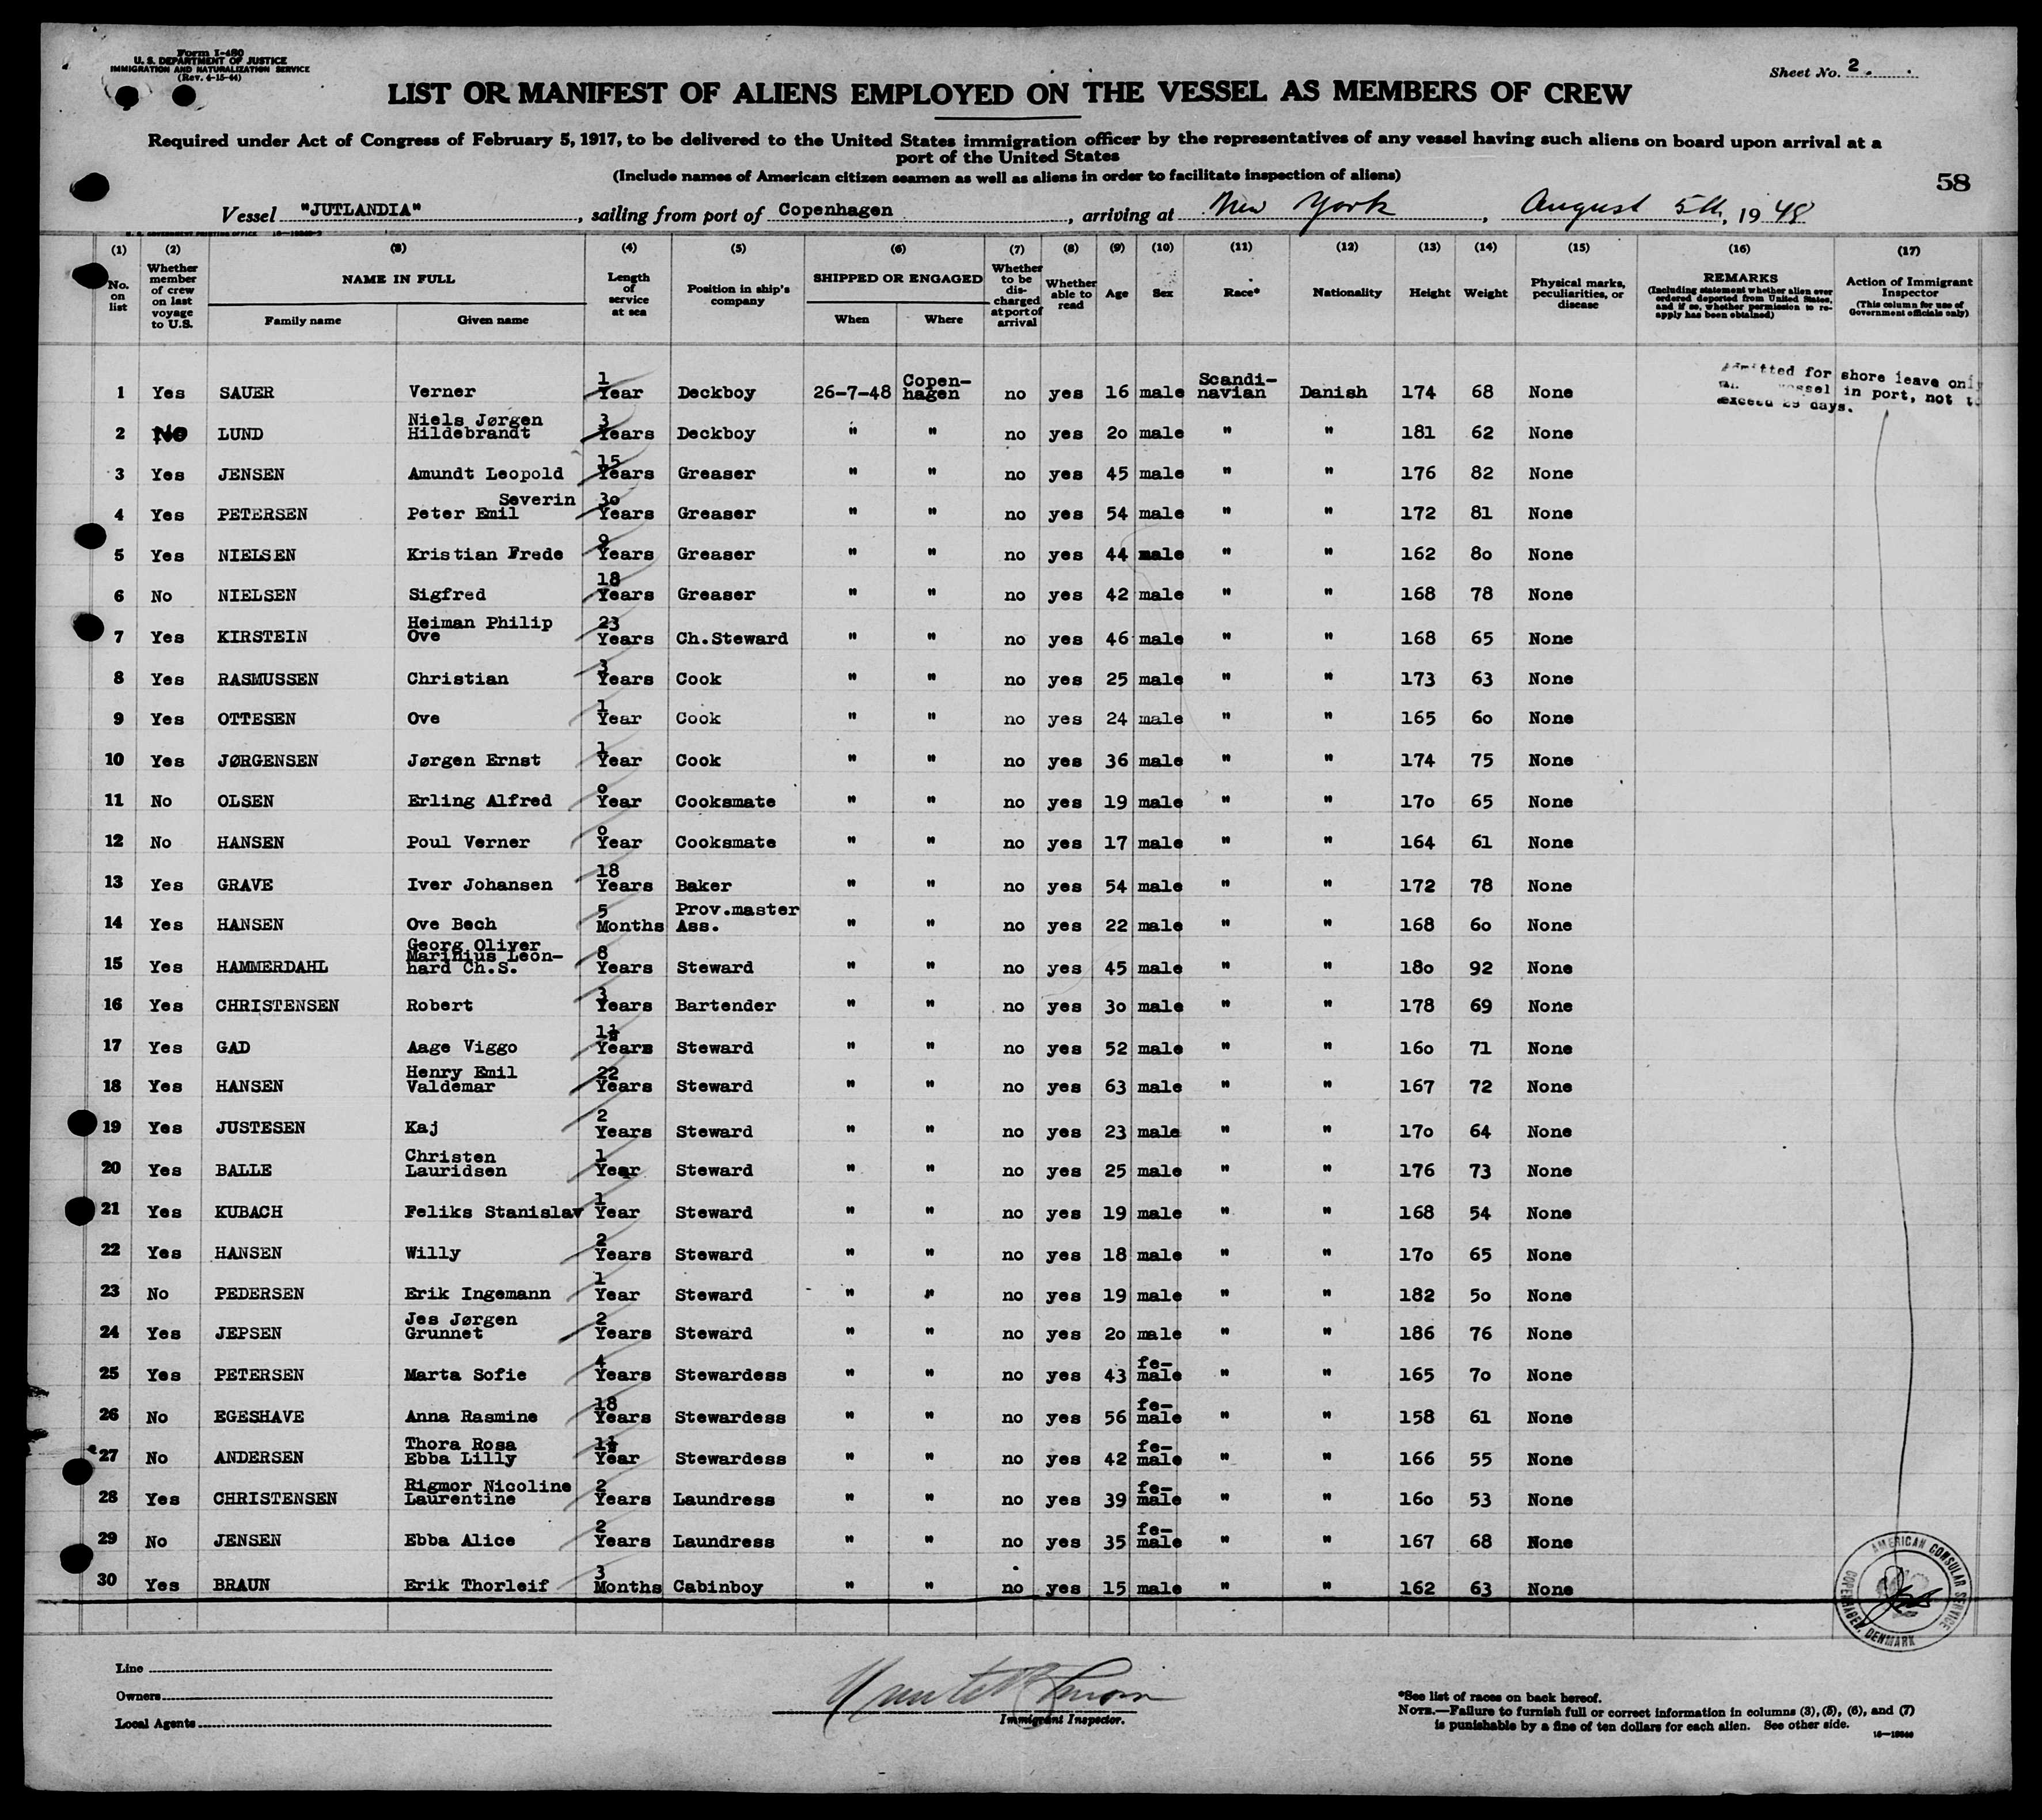 Form I-480
U. S. DEPARTMENT OF JUSTICE
IMMIGRATION AND NATURALIZATION SERVICE
(Rev. 4-15-44)
Sheet No. 2.
LIST OR MANIFEST OF ALIENS EMPLOYED ON THE VESSEL AS MEMBERS OF CREW
Required under Act of Congress of February 5, 1917, to be delivered to the United States immigration officer by the representatives of any vessel having such aliens on board upon arrival at a
port of the United States
(Include names of American citizen seamen as well as aliens in order to facilitate inspection of aliens)
58
Vessel "JUTLANDIA", sailing from port of Copenhagen, arriving at New York, August 5th, 1948
(1) (2) (3) (4) (5) (6) (7) (8) (9) (10) (11) (12) (13) (14) (15) (16) (17)
No. on list
Whether member of crew on last voyage to U.S.
NAME IN FULL
Family name Given name
Length of service at sea
Position in ship's company
SHIPPED OR ENGAGED
When Where
Whether to be discharged at port of arrival
Whether able to read
Age
Sex
Race*
Nationality
Height
Weight
Physical marks, peculiarities, or disease
REMARKS
(Including statement whether alien ever ordered deported from United States, and if so, whether permission to re-apply has been obtained)
Action of Immigrant Inspector
(This column for use of Government officials only)
Admitted for shore leave only
vessel in port, not to
exceed 29 days.
1 Yes SAUER Verner 1 Year Deckboy 26-7-48 Copen-hagen no yes 16 male Scandi-navian Danish 174 68 None
2 No LUND Niels Jørgen Hildebrandt 3 Years Deckboy " " no yes 2o male " " 181 62 None
3 Yes JENSEN Amundt Leopold 15 Years Greaser " " no yes 45 male " " 176 82 None
4 Yes PETERSEN Peter Emil Severin 3o Years Greaser " " no yes 54 male " " 172 81 None
5 Yes NIELSEN Kristian Frede 9 Years Greaser " " no yes 44 male " " 162 8o None
6 No NIELSEN Sigfred 18 Years Greaser " " no yes 42 male " " 168 78 None
7 Yes KIRSTEIN Heiman Philip Ove 23 Years Ch.Steward " " no yes 46 male " " 168 65 None
8 Yes RASMUSSEN Christian 3 Years Cook " " no yes 25 male " " 173 63 None
9 Yes OTTESEN Ove 1 Year Cook " " no yes 24 male " " 165 6o None
10 Yes JØRGENSEN Jørgen Ernst 1 Year Cook " " no yes 36 male " " 174 75 None
11 No OLSEN Erling Alfred o Year Cooksmate " " no yes 19 male " " 17o 65 None
12 No HANSEN Poul Verner o Year Cooksmate " " no yes 17 male " " 164 61 None
13 Yes GRAVE Iver Johansen 18 Years Baker " " no yes 54 male " " 172 78 None
14 Yes HANSEN Ove Bech 5 Months Prov.master Ass. " " no yes 22 male " " 168 6o None
15 Yes HAMMERDAHL Georg Oliver Marinius Leon-hard Ch.S. 8 Years Steward " " no yes 45 male " " 18o 92 None
16 Yes CHRISTENSEN Robert 3 Years Bartender " " no yes 3o male " " 178 69 None
17 Yes GAD Aage Viggo 1½ Years Steward " " no yes 52 male " " 16o 71 None
18 Yes HANSEN Henry Emil Valdemar 22 Years Steward " " no yes 63 male " " 167 72 None
19 Yes JUSTESEN Kaj 2 Years Steward " " no yes 23 male " " 17o 64 None
20 Yes BALLE Christen Lauridsen 1 Year Steward " " no yes 25 male " " 176 73 None
21 Yes KUBACH Feliks Stanislav 1 Year Steward " " no yes 19 male " " 168 54 None
22 Yes HANSEN Willy 2 Years Steward " " no yes 18 male " " 17o 65 None
23 No PEDERSEN Erik Ingemann 1 Year Steward " " no yes 19 male " " 182 5o None
24 Yes JEPSEN Jes Jørgen Grunnet 2 Years Steward " " no yes 2o male " " 186 76 None
25 Yes PETERSEN Marta Sofie 4 Years Stewardess " " no yes 43 fe-male " " 165 7o None
26 No EGESHAVE Anna Rasmine 18 Years Stewardess " " no yes 56 fe-male " " 158 61 None
27 No ANDERSEN Thora Rosa Ebba Lilly 1½ Year Stewardess " " no yes 42 fe-male " " 166 55 None
28 Yes CHRISTENSEN Rigmor Nicoline Laurentine 2 Years Laundress " " no yes 39 fe-male " " 16o 53 None
29 No JENSEN Ebba Alice 2 Years Laundress " " no yes 35 fe-male " " 167 68 None
30 Yes BRAUN Erik Thorleif 3 Months Cabinboy " " no yes 15 male " " 162 63 None
AMERICAN CONSULAR SERVICE
COPENHAGEN, DENMARK
Line
Owners
Local Agents
Immigrant Inspector.
*See list of races on back hereof.
NOTE.—Failure to furnish full or correct information in columns (3), (5), (6), and (7)
is punishable by a fine of ten dollars for each alien. See other side.